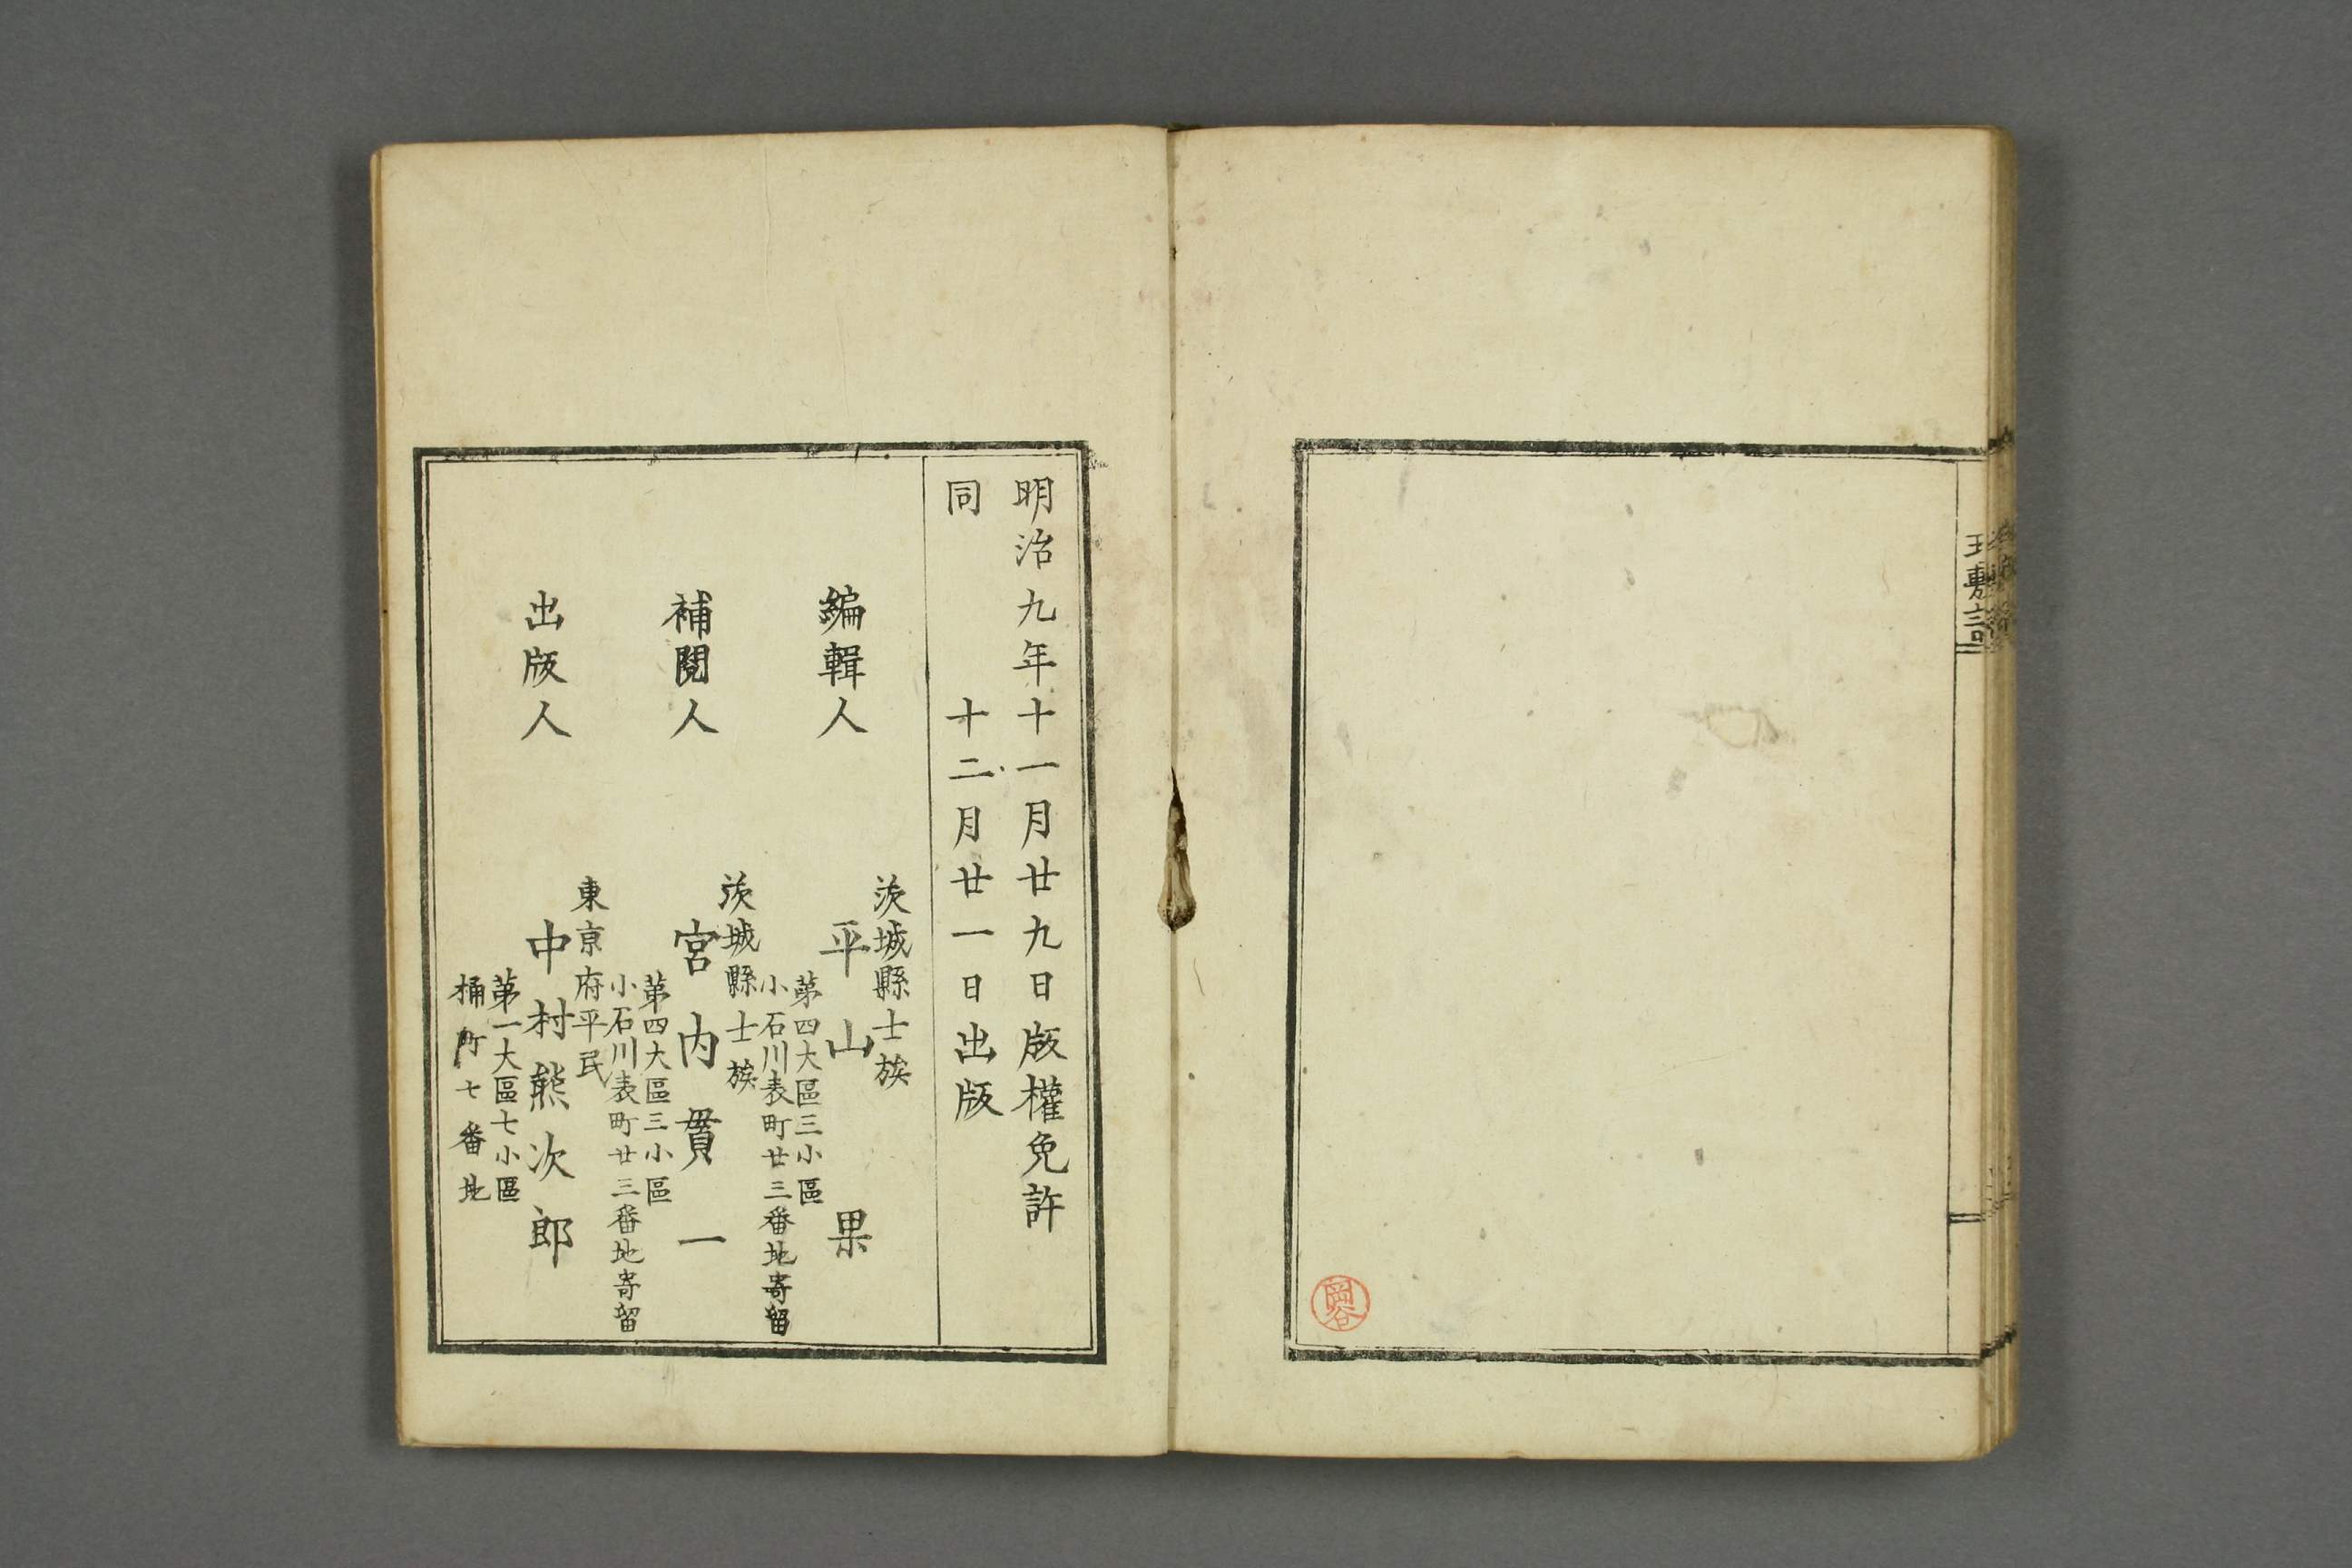 明治九年十一月廿九日版權免許
同　十二月廿一日出版
茨城縣士族
編輯人　平山果
第四大區三小區
小石川表町廿三番地寄留
茨城縣士族
補閲人　宮内貫一
第四大區三小區
小石川表町廿三番地寄留
東京府平民
出版人　中村熊次郎
第一大區七小區
桶町七番地
岡谷